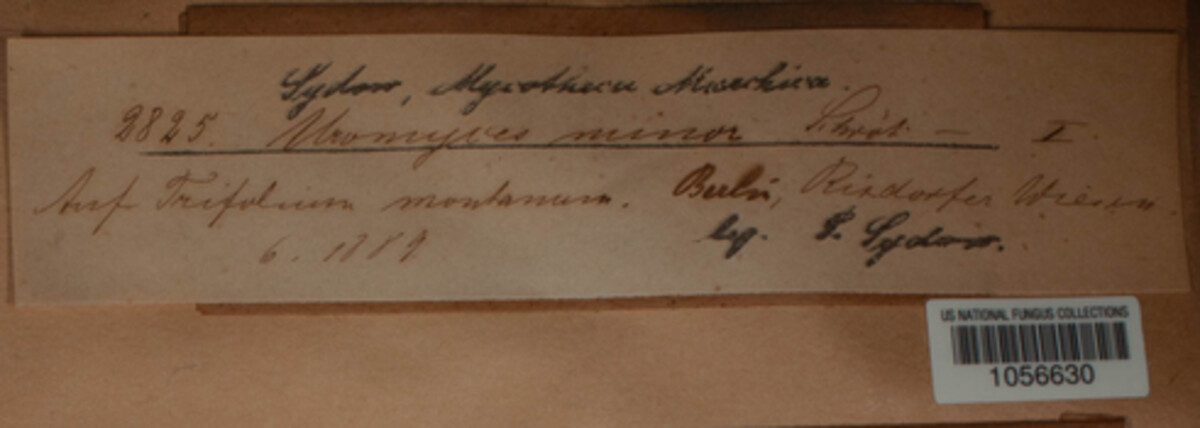 Sydow, Mycotheca Marchica.
2825. Uromyces minor Schröt. — I.
Auf Trifolium montanum. Berlin, Rixdorfer Wiesen.
6. 1889 leg. P. Sydow.
US NATIONAL FUNGUS COLLECTIONS
1056630